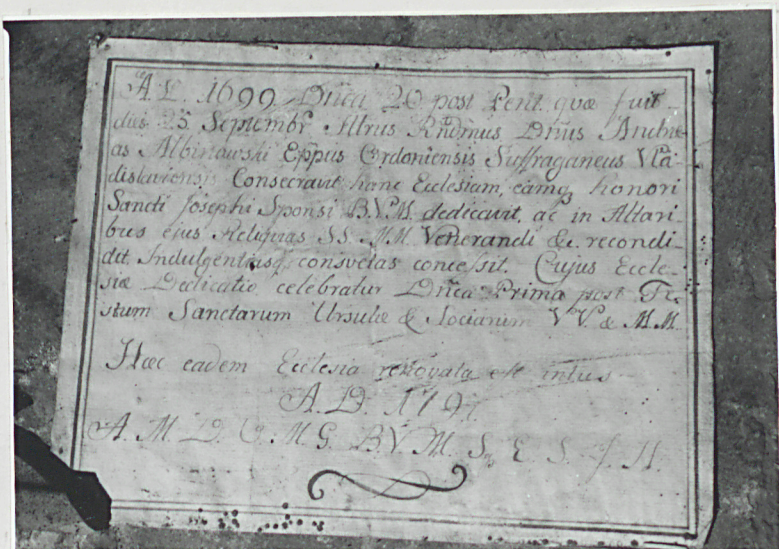 A.D. 1699 Dñca 20 post Pent. quæ fuit
dies 25 Septembr Illrius Rndmus Dnus Andre-
as Albinowski Eppus Ordoniensis Suffraganeus Vla-
dislaviensis Consecravit hanc Ecclesiam, eamq3 honori
Sancti Josephi Sponsi B.V.M. dedicavit, ac in Altari-
bus ejus Reliquias SS. M.M. Venerandi &c. recondi-
dit Indulgentiasq3 consvetas concessit. Cujus Eccle-
siæ Dedicatio celebratur Dñca Prima post Fe-
stum Sanctarum Ursulæ & Sociarum V.V. & M.M.
Hæc eadem Ecclesia renovata est intus
A.D. 179
A. M. D. O. M. G. B. V. M. S. E. S. J. H.